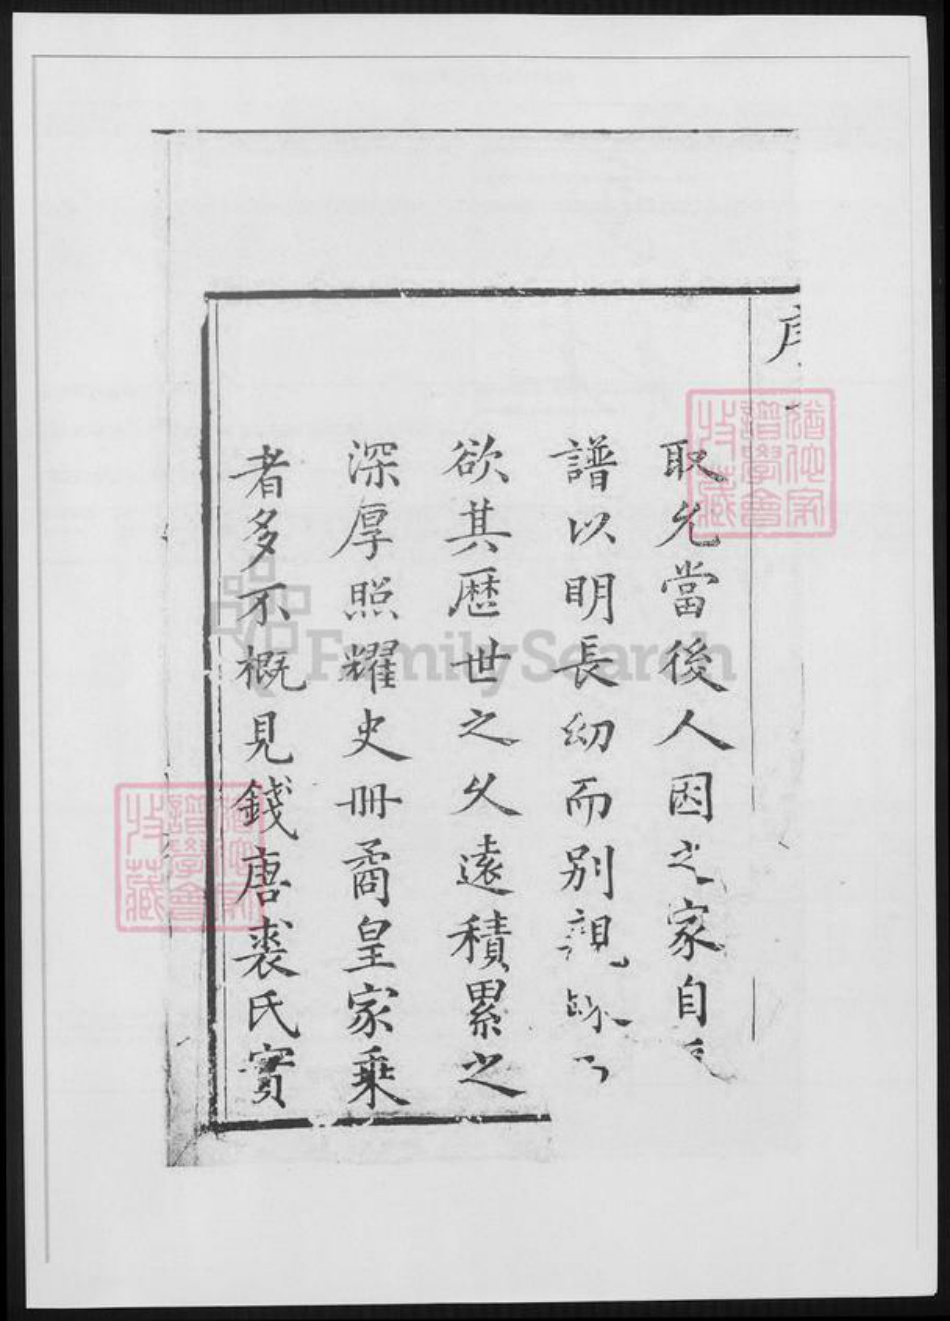 序
取允當後人因之家自
譜以明長幼而别親疎
欲其歷世之久遠積累之
深厚照耀史冊矞皇家乗
者多不概見錢唐裘氏實
譜學會
收藏
FamilySearch
譜學會
收藏